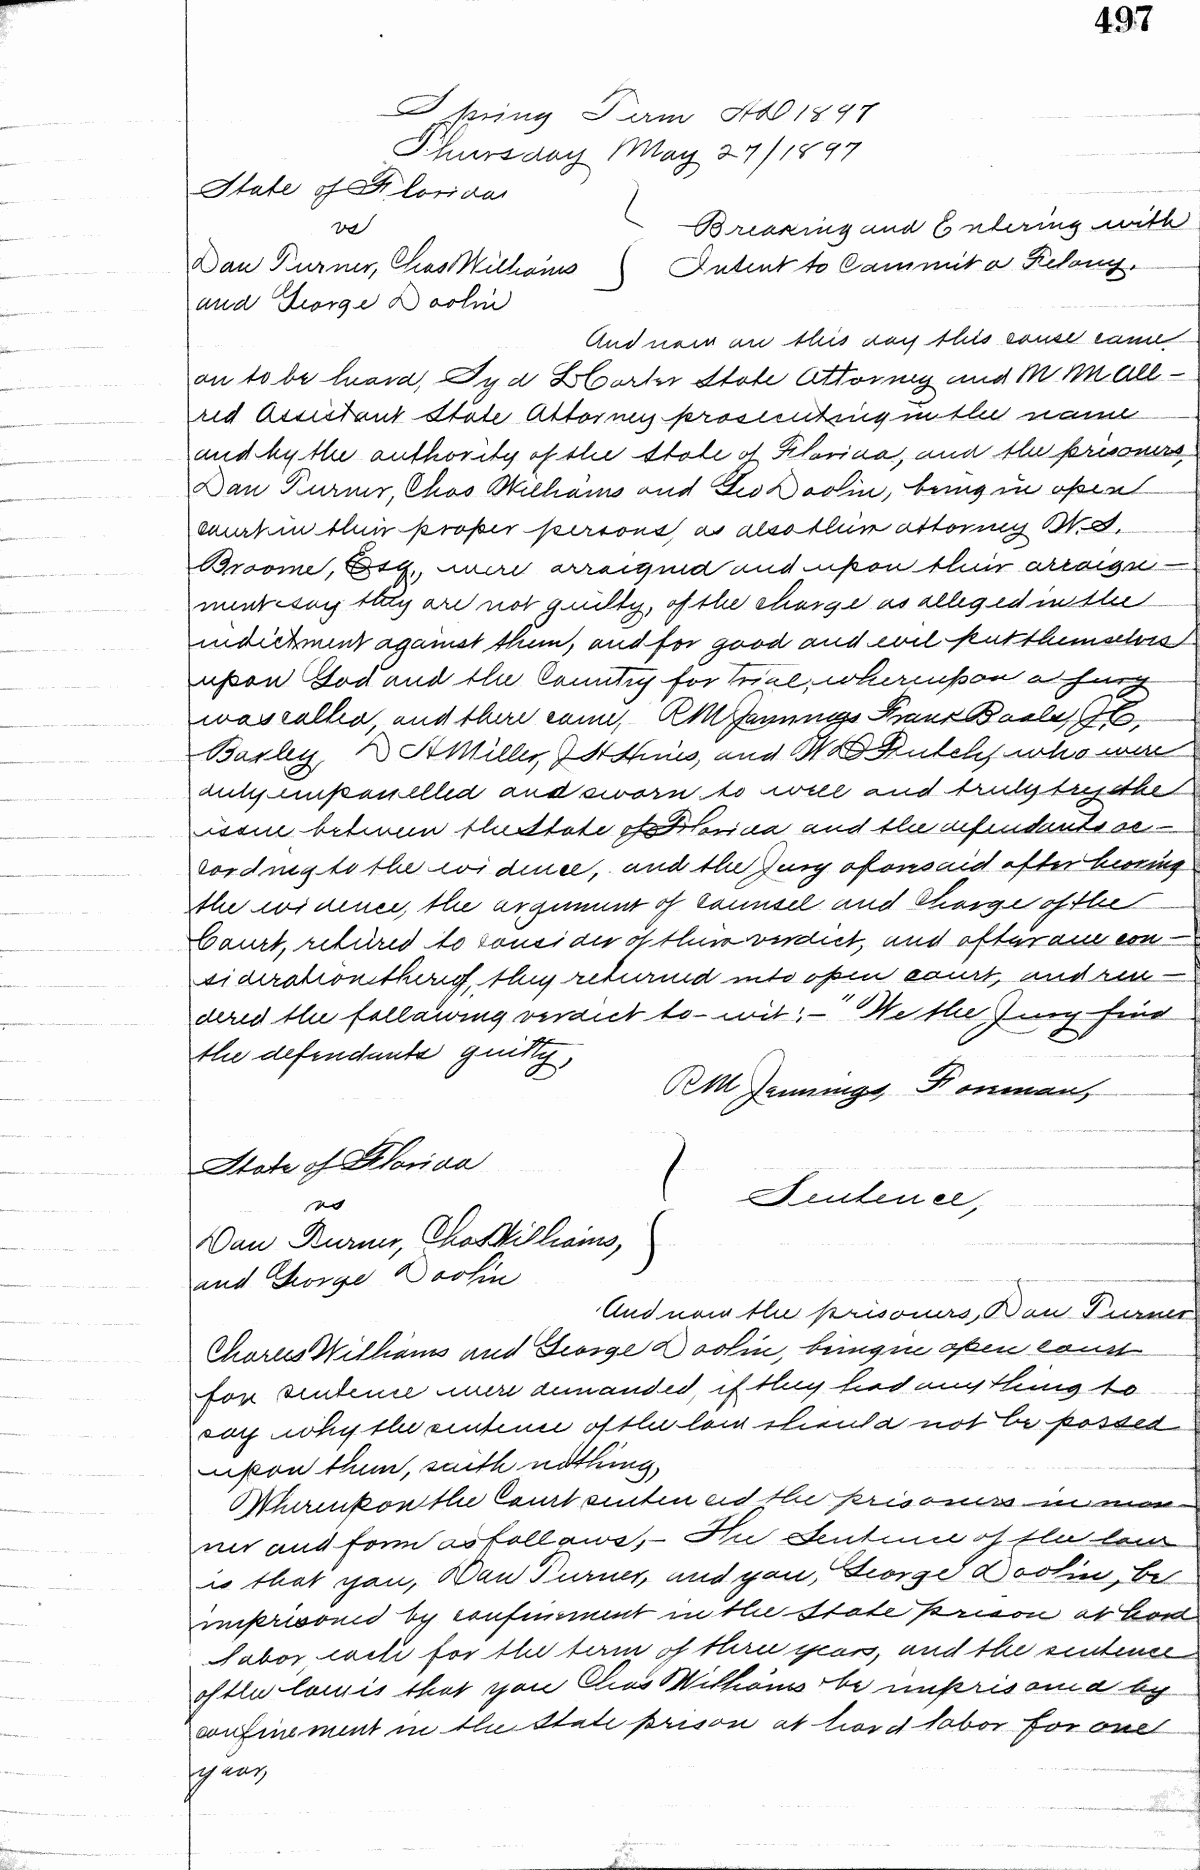 497
Spring Term AD 1897
Thursday May 27/1897
State of Florida
vs
Breaking and Entering with
Dan Turner, Chas Williams
Intent to Commit a Felony.
and George Doolin
And now on this day this cause came
on to be heard, Syd L Carter State Attorney and M M All-
red Assistant State Attorney prosecuting in the name
and by the authority of the State of Florida, and the prisoners,
Dan Turner, Chas Williams and Geo Doolin, being in open
court in their proper persons, as also their attorney W. S.
Broome, Esq., were arraigned and upon their arraign-
ment say they are not guilty, of the charge as alleged in the
indictment against them, and for good and evil put themselves
upon God and the Country for trial, whereupon a Jury
was called, and there came, R M Jennings Frank Boals, J. C,
Baxley, D A Miller, J H Hines, and W D Futch, who were
duly empanelled and sworn to well and truly try the
issue between the State of Florida and the defendants ac-
cording to the evidence, and the Jury aforesaid after hearing
the evidence, the argument of counsel and Charge of the
Court, retired to consider of their verdict, and after due con-
sideration thereof, they returned into open court, and ren-
dered the following verdict to-wit:- "We the Jury find
the defendants guilty,
R M Jennings, Foreman,
State of Florida
vs
Sentence,
Dan Turner, Chas Williams,
and George Doolin
And now the prisoners, Dan Turner
Charles Williams and George Doolin, being in open court
for sentence were demanded, if they had anything to
say why the sentence of the law should not be passed
upon them, saith nothing,
Whereupon the Court sentenced the prisoners in man-
ner and form as follows,- The Sentence of the law
is that you, Dan Turner, and you, George Doolin, be
imprisoned by confinement in the State prison at hard
labor, each for the term of three years, and the sentence
of the law is that you Chas Williams be imprisoned by
confinement in the State prison at hard labor for one
year,